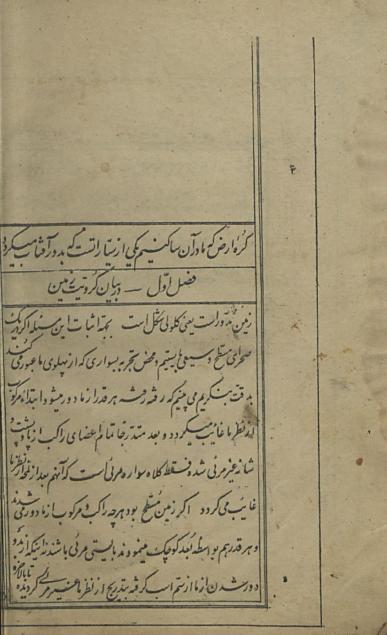 ۴
کره ارض که ما در آن ساکنیم یکی از سیاراتست که بدور آفتاب میگردد
فصل اول — در بیان کرویت زمین
زمین مدور است یعنی گلوله شکل است بجهة اثبات این مسئله اگر در یک
صحرای مسطح و وسیعی بایستیم و محض تجربه بسواری که از پهلوی ما عبور میکند
بدقت بنگریم می بینیم که رفته رفته هر قدر از ما دور میشود ابتدا مرکوب
از نظر ما غایب میگردد و بعد متدرجا تمام اعضای راکب از پا و پشت و
شانه غیر مرئی شده فقط کلاه سواره مرئی است که آنهم بعد از لحظه از نظر ما
غایب می گردد اگر زمین مسطح بود هر چه راکب و مرکوب از ما دور میشدند
و هر قدر هم بواسطه بعد کوچک مینمودند بایستی مرئی باشند نه اینکه از بدو
دور شدن از ما از سم اسب گرفته بتدریج از نظر ما غیر مرئی گردیده تا بالاخره